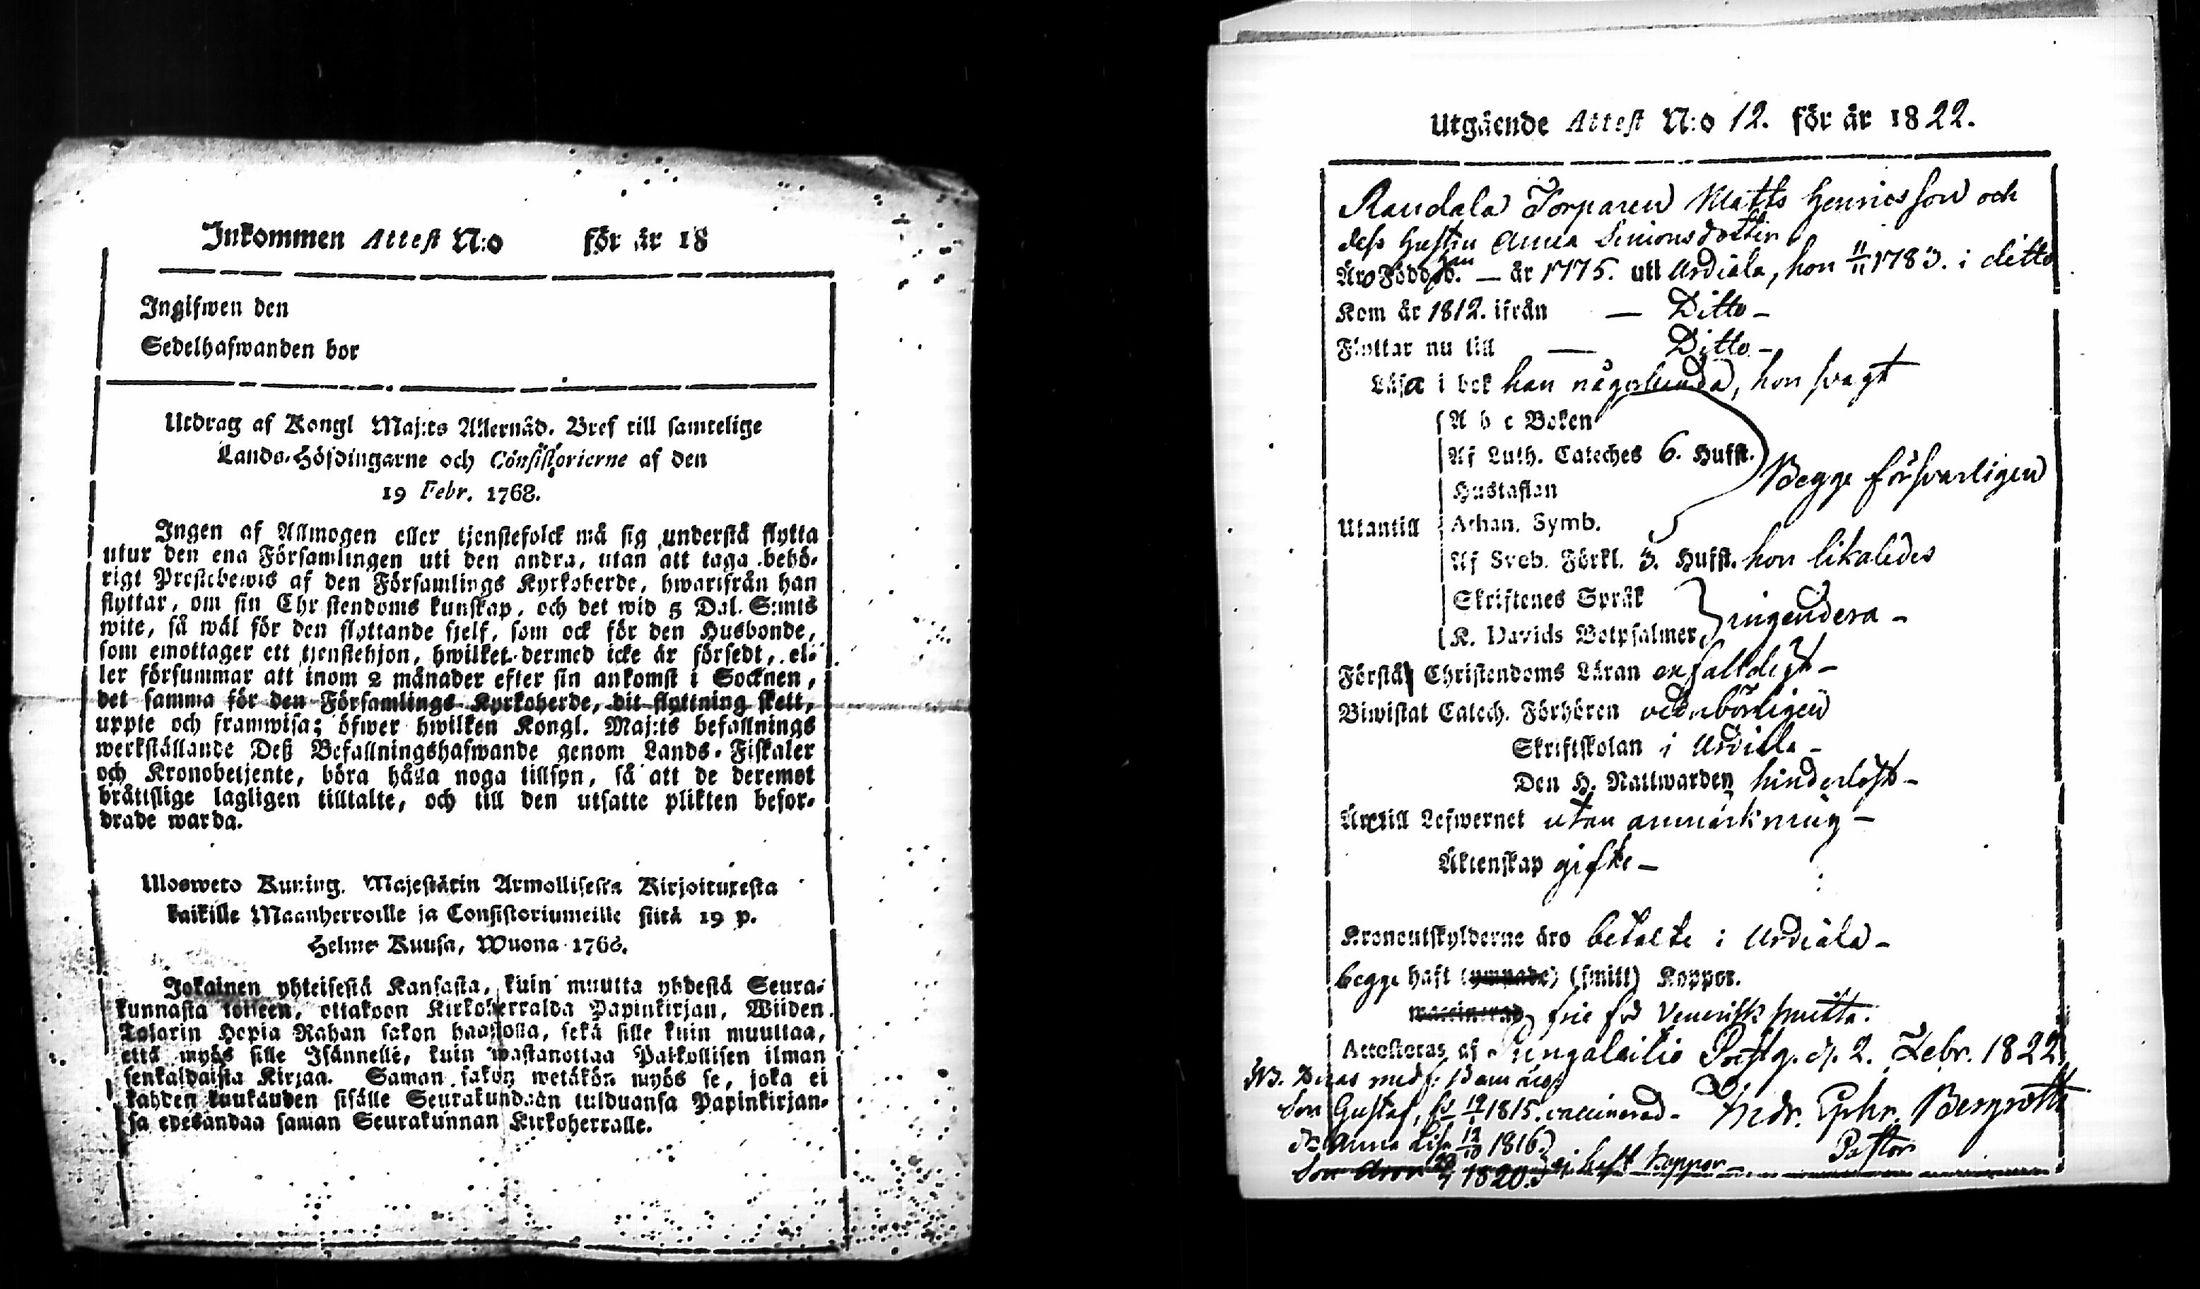 Inkommen Attest N:o för år 18
Ingifwen den
Sedelhafwanden bor
Utdrag af Kongl Maj:ts Allernåd. Bref till samtelige
Lands-Höfdingarne och Consistorierne af den
19 Febr. 1768.
Ingen af Allmogen eller tjenstefolck må sig understå flytta
utur den ena Församlingen uti den andra, utan att taga behö-
rigt Prestebewis af den Församlings Kyrkoherde, hwarifrån han
flyttar, om sin Christendoms kunskap, och det wid 5 Dal. S:mts
wite, så wäl för den flyttande sjelf, som ock för den Husbonde,
som emottager ett tjenstehjon, hwilket dermed icke är försedt, el-
ler försummar att inom 2 månader efter sin ankomst i Socknen,
det samma för den Församlings Kyrkoherde, dit flyttning skett,
uppte och framwisa; öfwer hwilken Kongl. Maj:ts befallnings
werkställande Deß Befallningshafwande genom Lands-Fiskaler
och Kronobetjente, böra hålla noga tillsyn, så att de deremot
bråttslige lagligen tilltalte, och till den utsatte plikten befor-
drade warda.
Ulosweto Kuning. Majestätin Armollisesta Kirjoituxesta
kaikille Maanherroille ja Consistoriumeille siitä 19 p.
Helme Kuusa, Wuona 1768.
Jokainen yhteisestä Kansasta, kuin muutta yhdestä Seura-
kunnasta toiseen, ottakoon Kirkoherralda Papinkirjan, Wiiden
Talarin Hopia Rahan sakon haastolla, sekä sille kuin muuttaa,
että myös sille Isännelle, kuin wastanottaa Palkollisen ilman
senkaldaista Kirjaa. Saman sakon wetäkön myös se, joka ei
kahden kuukauden sisälle Seurakundaan tulduansa Papinkirjan-
sa edesandaa saman Seurakunnan Kirkoherralle.
Utgående Attest N:o 12. för år 1822.
Randala Torparen Matts Henricsson och
dess hustru Anna Simonsdotter
Äro Född han — år 1775. uti Urdiala, hon 11/11 1783. i ditto
Kom år 1812. ifrån — Ditto —
Flyttar nu till — Ditto —
Läsa i bok han någorlunda, hon svagt
A b c Boken
Af Luth. Cateches 6. Hufst.
Hustaflan
Begge försvarligen
Utantill Athan. Symb.
Af Sveb. Förkl. 3. Hufst. hon likaledes
Skriftenes Språk
K. Davids Botpsalmer
ingendera —
Förstå Christendoms Läran enfalldigt —
Biwistat Catech. Förhören vederbörligen
Skriftskolan i Urdiala —
Den H. Nattwarden hinderlöst —
Äro till Lefwernet utan anmärkning —
Äktenskap gifte —
Kronoutskylderne äro betalte i Urdiala —
begge haft (ympade) (smitt) Koppor.
vaccinerad frie från Venerisk smitta.
Attesteras af Pungalaitio Prestg. d. 2. Febr. 1822
NB. Deras med
Son Gustaf, 1815. vaccinerad — And. Ephr. Bergroth
Anna Lisa 12/10 1816 Pastor
Son 1820 ej haft koppor —